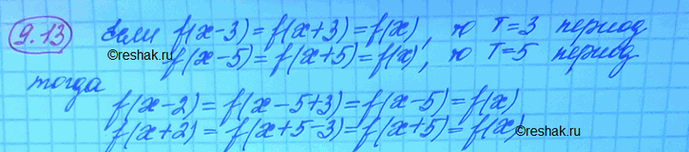 9.13 Если f(x-3) = f(x+3) = f(x), то T=3 период
©reshak.ru f(x-5) = f(x+5) = f(x), то T=5 период
тогда
f(x-2) = f(x-5+3) = f(x-5) = f(x)
f(x+2) = f(x+5-3) = f(x+5) = f(x)
©reshak.ru